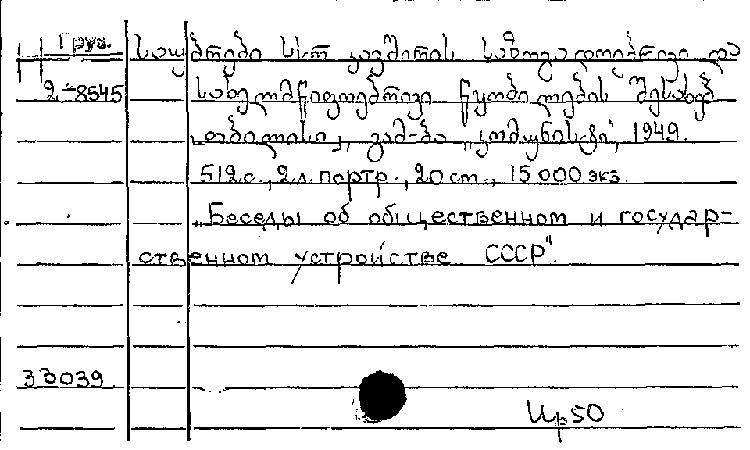 1 Груз. საუბრები სსრ კავშირის საზოგადოებრივი და
2-8545 სახელმწიფოებრივი წყობილების შესახებ
თბილისი, გამ-ბა „კომუნისტი", 1949.
512 с., 2 л. портр., 20 см., 15 000 экз.
„Беседы об общественном и государ-
ственном устройстве СССР".
33039
Цр50